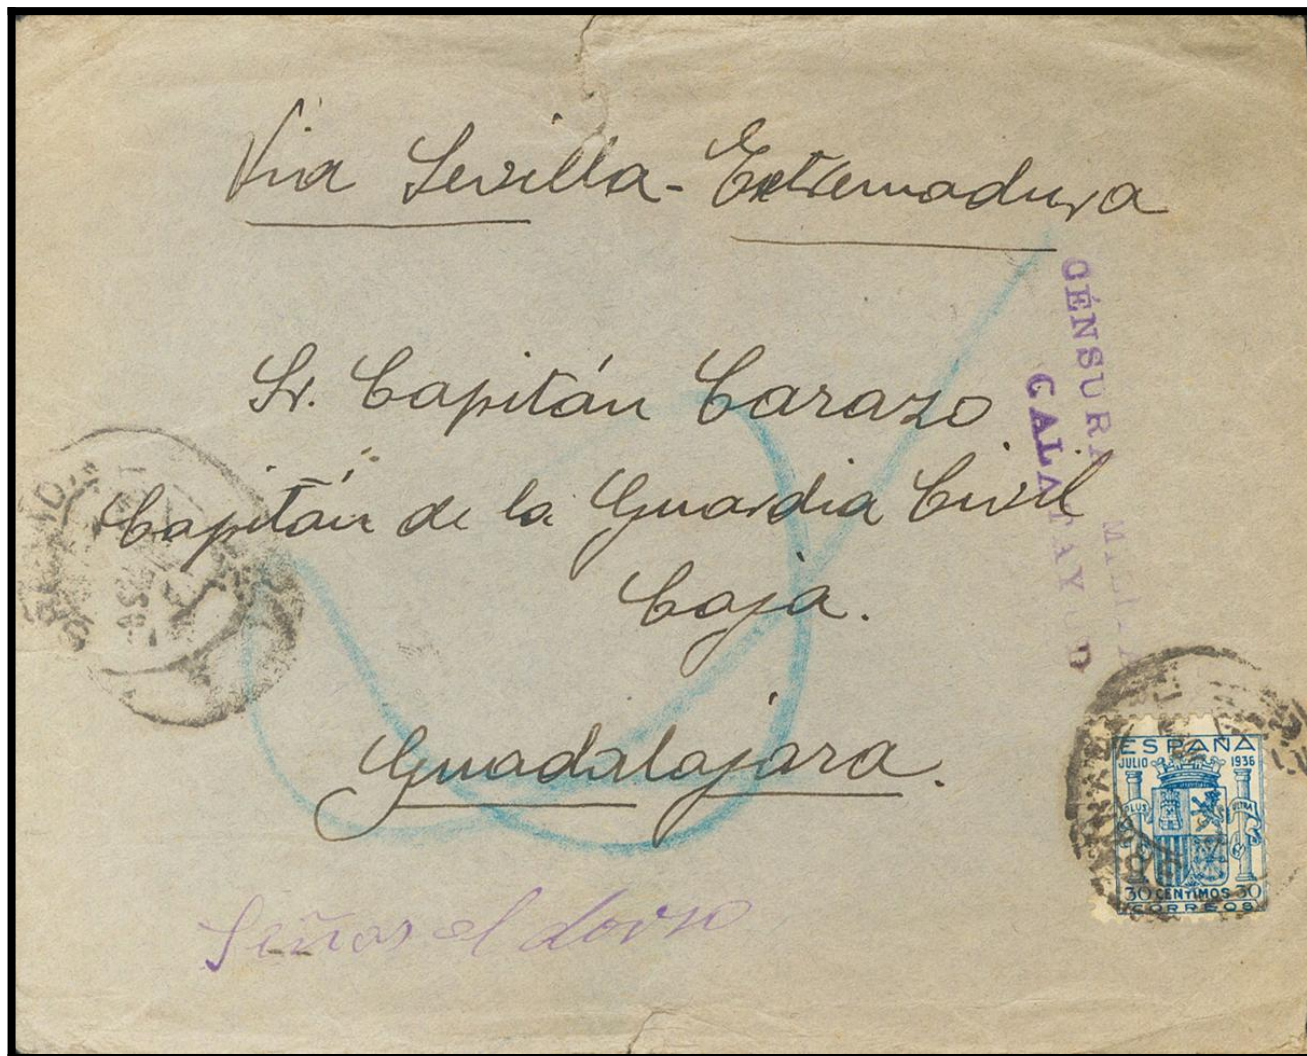 Via Sevilla - Extremadura
CÉNSURA MILITAR
CALATAYUD
Sr. Capitán Carazo
Capitán de la Guardia Civil
Caja.
Guadalajara.
Señas al dorso
ESPAÑA
JULIO 1936
PLUS ULTRA
30 CENTIMOS 30
CORREOS